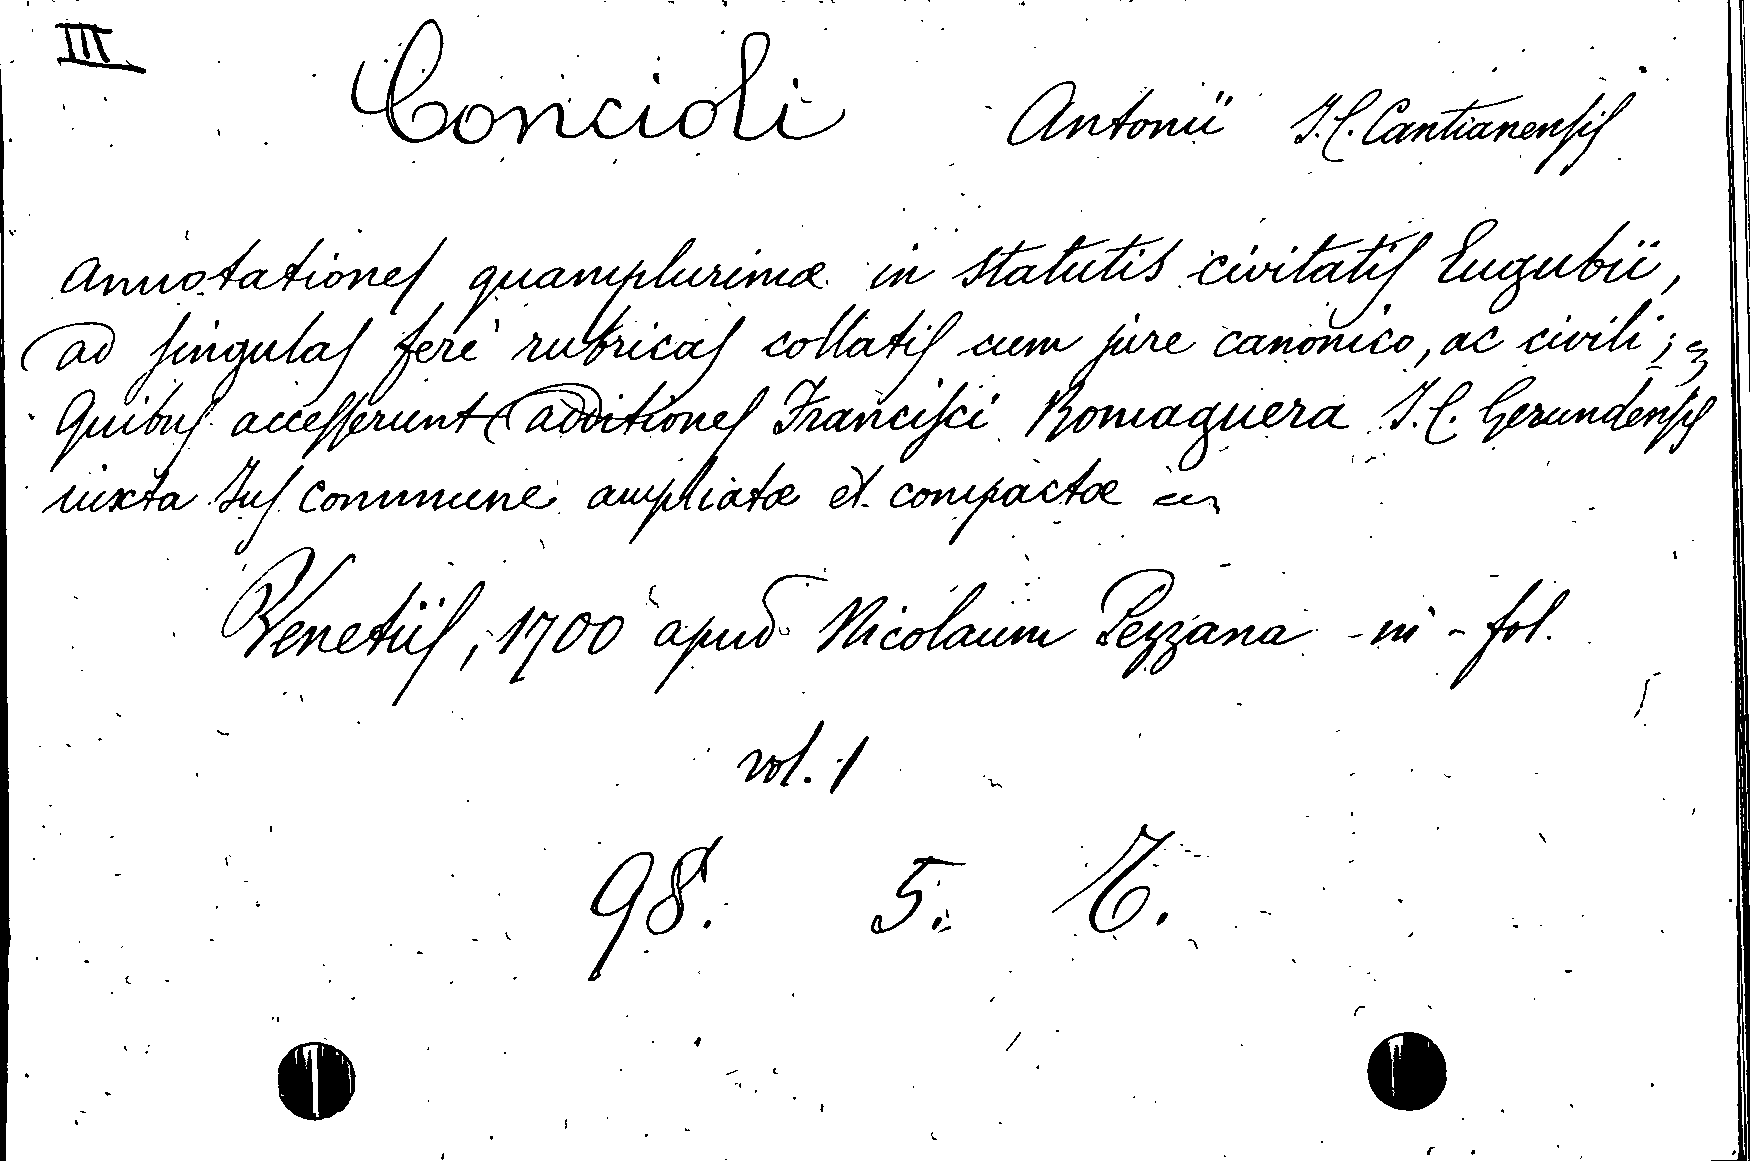 III
Concioli Antonii J. C. Cantianensis
Annotationes quamplurimæ in statutis civitatis Eugubii,
ad singulas feré rubricas collatis cum jure canonico, ac civili;
Quibus accesserunt additiones Francisci Romaguera J. C. Gerundensis
iuxta Jus commune ampliatæ et compactæ
Venetiis, 1700 apud Nicolaum Pezzana - in - fol.
vol. 1
98. 5.